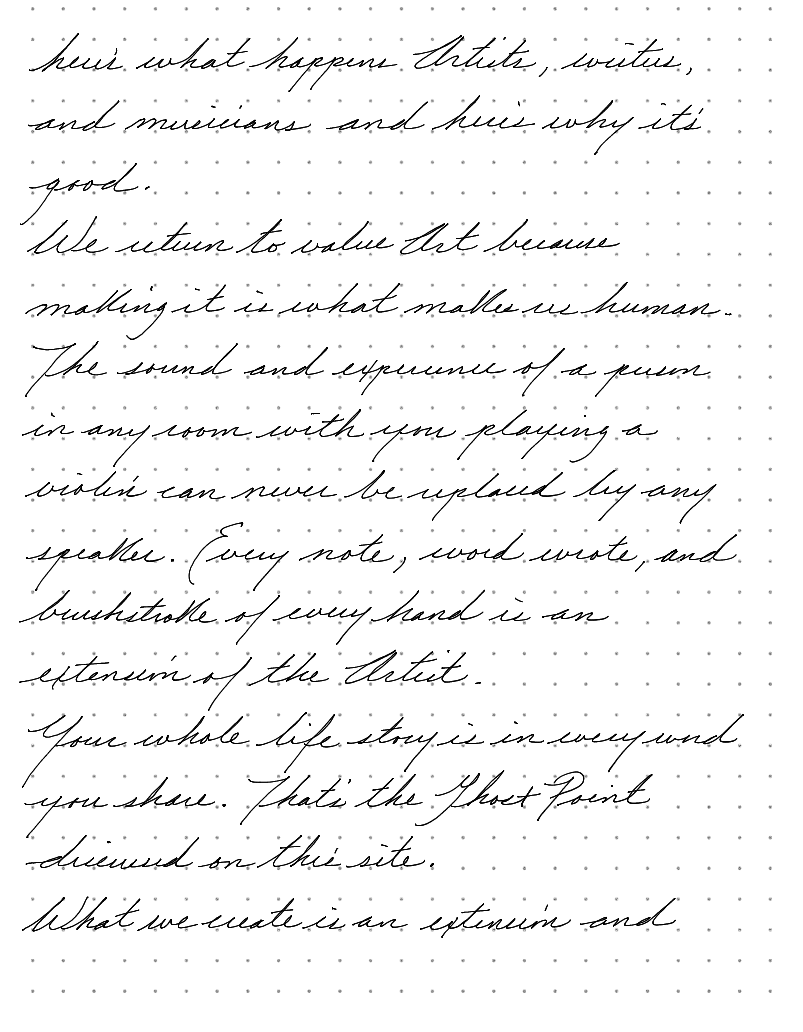 here's what happens Artists, writers,
and musicians and here's why it's
good.
We return to value Art because
making it is what makes us human.
The sound and experience of a person
in any room with you playing a
violin can never be replaced by any
speaker. Every note, word wrote, and
brushstroke of every hand is an
extension of the Artist.
Your whole life story is in every word
you share. That's the Ghost Point
discussed on this site.
What we create is an extension and